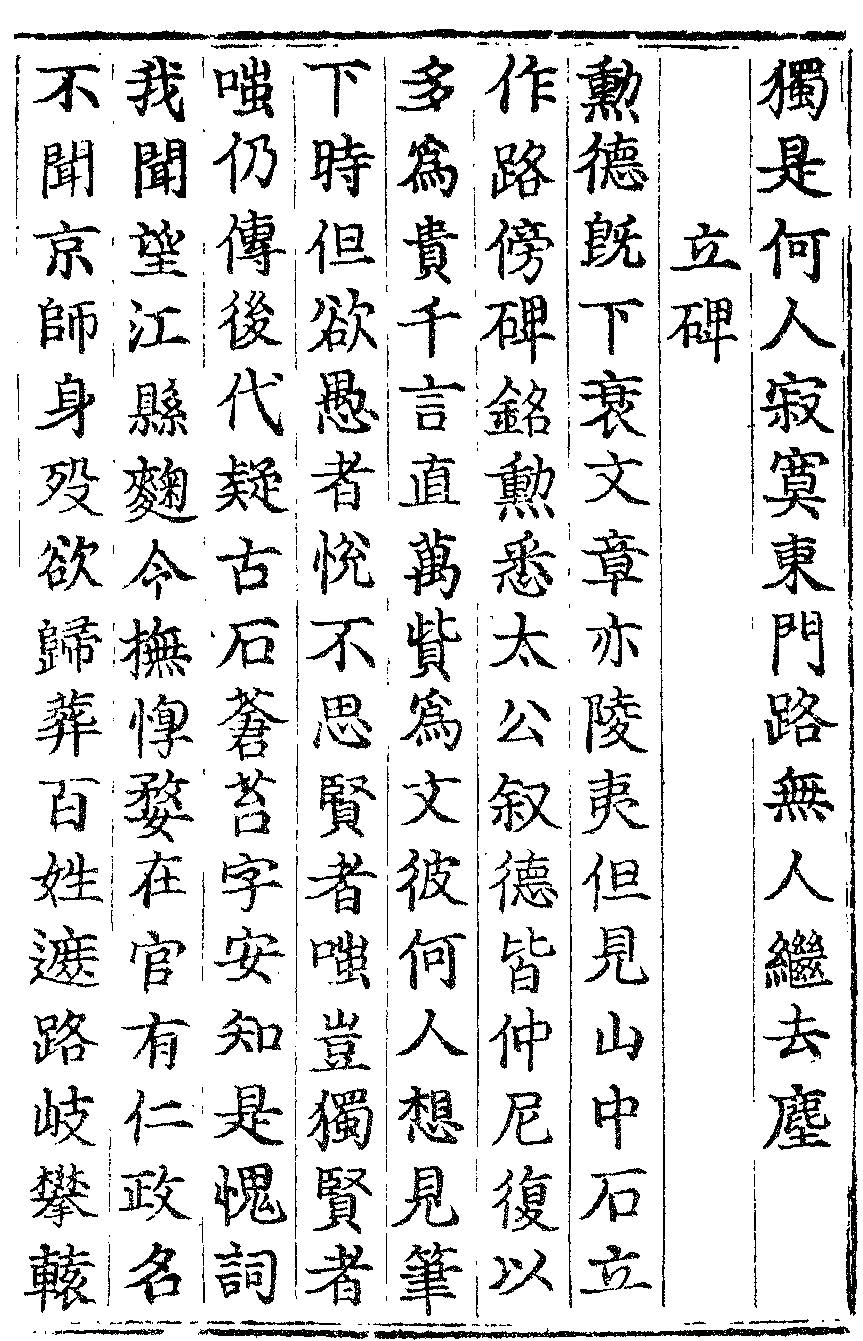 獨是何人寂寞東門路無人繼去塵
立碑
勲德既下衰文章亦陵夷但見山中石立
作路傍碑銘勲悉太公叙德皆仲尼復以
多爲貴千言直萬貲爲文彼何人想見筆
下時但欲愚者悅不思賢者嗤豈獨賢者
嗤仍傳後代疑古石蒼苔字安知是愧詞
我聞望江縣麴令撫惸嫠在官有仁政名
不聞京師身殁欲歸葬百姓遮路岐攀轅